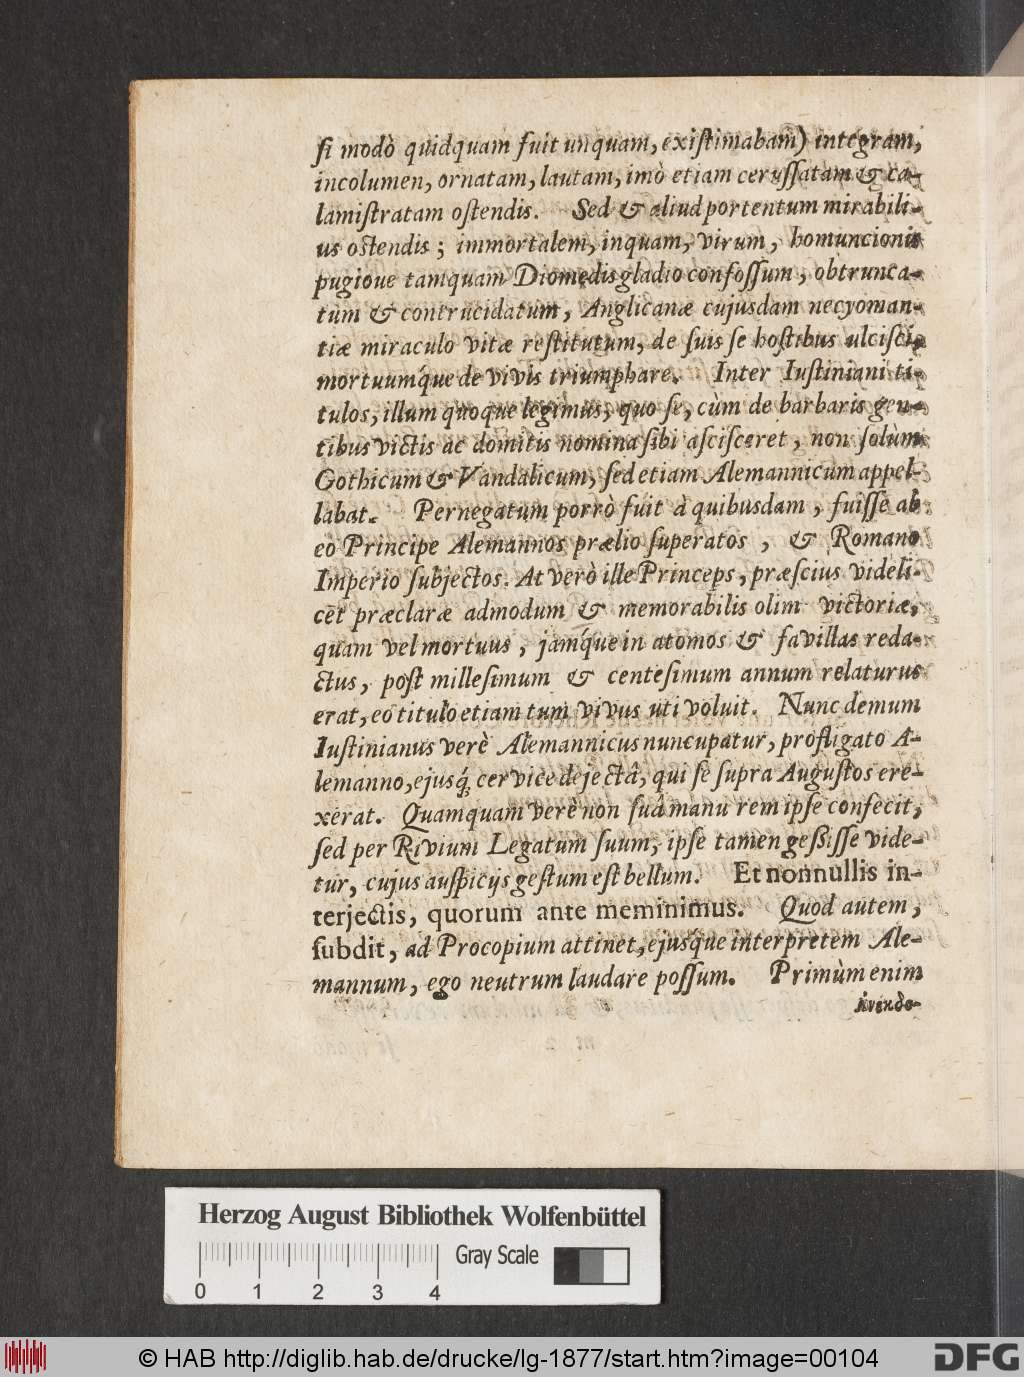 ſi modò quidquam fuit unquam, exiſtimabam) integram,
incolumen, ornatam, lautam, imò etiam ceruſſatam & ca-
lamiſtratam oſtendis. Sed & aliud portentum mirabili-
us oſtendis; immortalem, inquam, virum, homuncionis
pugione tamquam Diomedis gladio confoſſum, obtrunca-
tum & contrucidatum, Anglicanæ cujusdam necyoman-
tiæ miraculo vitæ reſtitutum, de ſuis ſe hoſtibus ulciſci,
mortuumq́ue de vivis triumphare. Inter Iuſtiniani ti-
tulos, illum quoque legimus, quo ſe, cùm de barbaris gen-
tibus victis ac domitis nomina ſibi aſciſceret, non ſolùm
Gothicum & Vandalicum, ſed etiam Alemannicum appel-
labat. Pernegatum porrò fuit à quibusdam, fuiſſe ab
eò Principe Alemannos prælio ſuperatos, & Romano
Imperio ſubjectos. At verò ille Princeps, præſcius videli-
cet præclaræ admodum & memorabilis olim victoriæ,
quam vel mortuus, jamq́ue in atomos & favillas reda-
ctus, poſt milleſimum & centeſimum annum relaturus
erat, eo titulo etiam tum vivus uti voluit. Nunc demum
Iuſtinianus verè Alemannicus nuncupatur, profligato A-
lemanno, ejusq́; cervice dejectâ, qui ſe ſupra Auguſtos ere-
xerat. Quamquam verè non ſuâ manu rem ipſe confecit,
ſed per Rivium Legatum ſuum, ipſe tamen geſsiſſe vide-
tur, cujus auſpicijs geſtum eſt bellum. Et nonnullis in-
terjectis, quorum ante meminimus. Quod autem,
ſubdit, ad Procopium attinet, ejusque interpretem Ale-
mannum, ego neutrum laudare poſſum. Primùm enim
ἀνεκδο-
Herzog August Bibliothek Wolfenbüttel
Gray Scale
0 1 2 3 4
© HAB http://diglib.hab.de/drucke/lg-1877/start.htm?image=00104
DFG